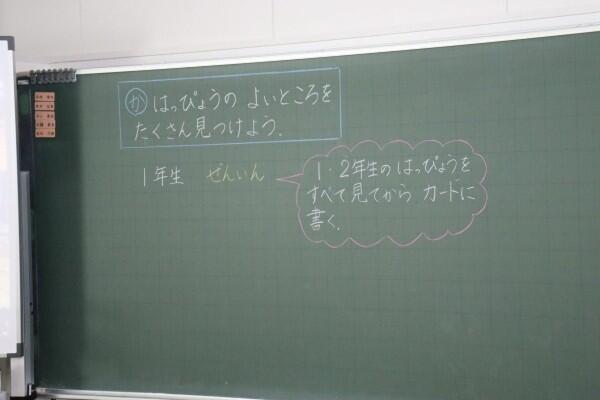 か はっぴょうの よいところを
たくさん見つけよう.
1年生 ぜんいん
1・2年生の はっぴょうを
すべて見てから カードに
書く.